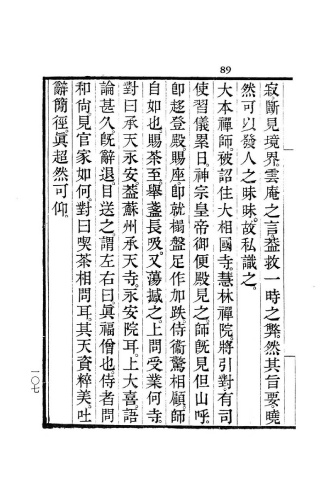 89
寂斷見境界雲庵之言葢救一時之獘然其旨要曉
然可以發人之昧昧故私識之
大本禪師被詔住大相國寺慧林禪院將引對有司
使習儀累日神宗皇帝御便殿見之師旣見但山呼
卽趍登殿賜座卽就榻盤足作加趺侍衞驚相顧師
自如也賜茶至舉盞長吸又蕩撼之上問受業何寺
對曰承天永安葢蘇州承天寺永安院耳上大喜語
論甚久旣辭退目送之謂左右曰眞福僧也侍者問
和尚見官家如何對曰喫茶相問耳其天資粹美吐
辭簡徑眞超然可仰
一〇七